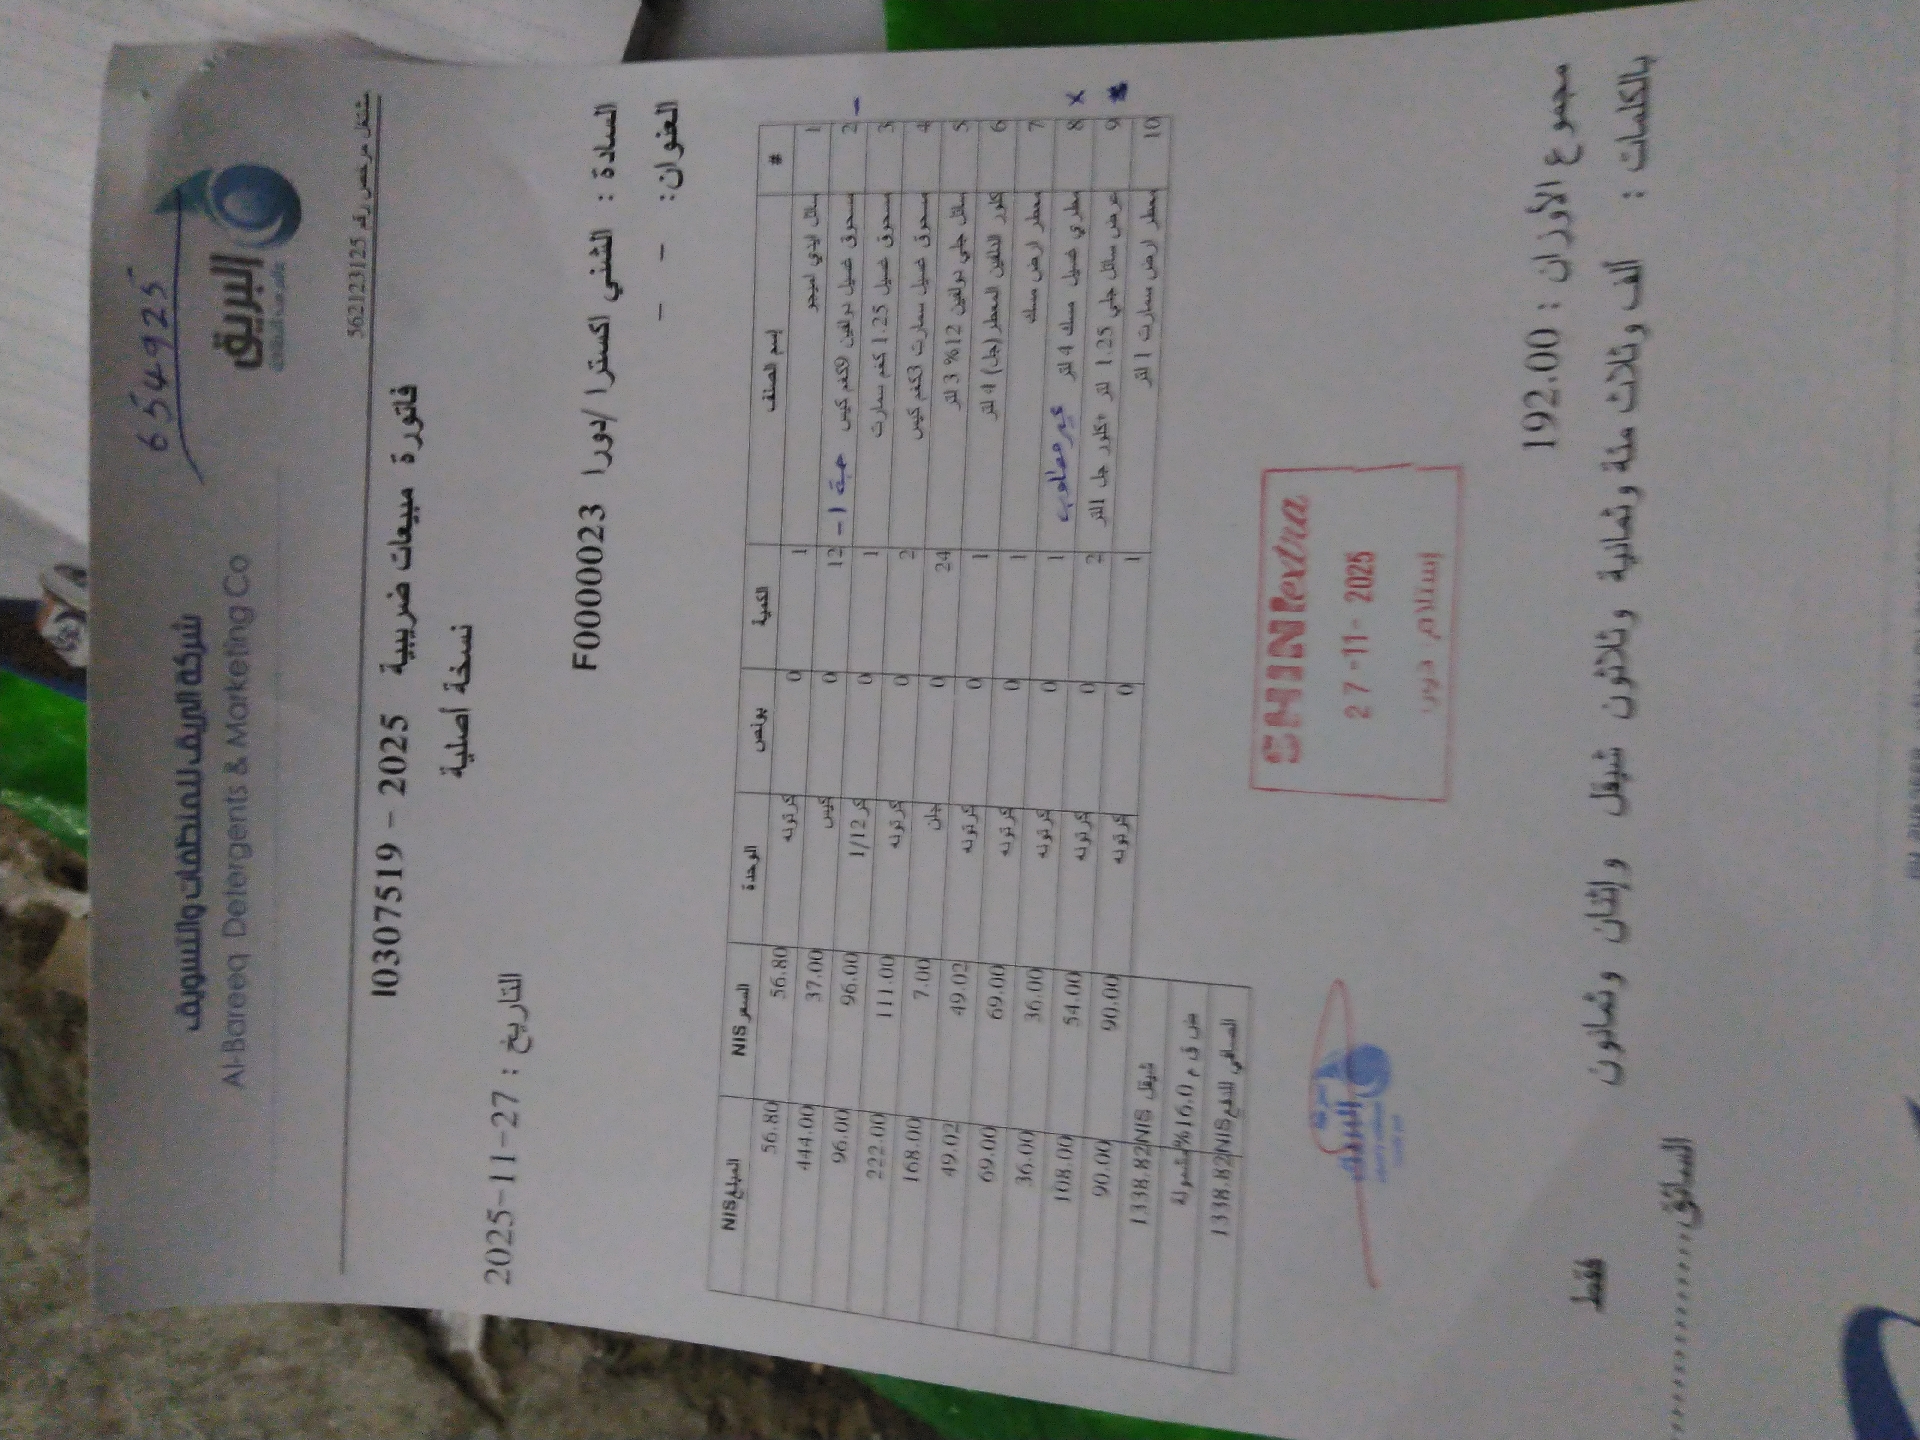 654925
البريق
شركة البريق للمنظفات والتسويق
Al-Bareeq Detergents & Marketing Co
مشتغل مرخص رقم 562123125
فاتورة مبيعات ضريبية 2025 – I0307519
نسخة أصلية
التاريخ : 27-11-2025
السادة : الشني اكسترا /دورا F0000023
العنوان: - -
# إسم الصنف الكمية بونص الوحدة السعر NIS المبلغ NIS
1 سائل ايدي 1 0 كرتونه 56.80 56.80
2 مسحوق غسيل دولفين 9كغم كيس 12 0 كيس 37.00 444.00
- حبة 1 -
3 مسحوق غسيل 1.25 كغم سمارت 1 0 كر 1/12 96.00 96.00
4 مسحوق غسيل سمارت 3كغم كيس 2 0 كرتونه 111.00 222.00
5 سائل جلي دولفين 12% 3 لتر 24 0 جلن 7.00 168.00
6 كلور الدلفين المعطر (جل) 4 لتر 1 0 كرتونه 49.02 49.02
7 معطر ارض مسك 1 0 كرتونه 69.00 69.00
8 مطري غسيل مسك 4 لتر 1 0 كرتونه 36.00 36.00
x غير مطلوب
9 عرض سائل جلي 1.25 لتر +كلور جل 1لتر 2 0 كرتونه 54.00 108.00
10 معطر ارض سمارت 1 لتر 1 0 كرتونه 90.00 90.00
شيقل NIS 1338.82
ض ق م 16.0% مشمولة
الصافي للدفع NIS 1338.82
SHINIextra
27-11-2025
إستلام دورا
البريق
مجموع الأوزان : 192.00
بالكلمات : ألف وثلاث مئة وثمانية وثلاثون شيقل وإثنان وثمانون فقط
السائق